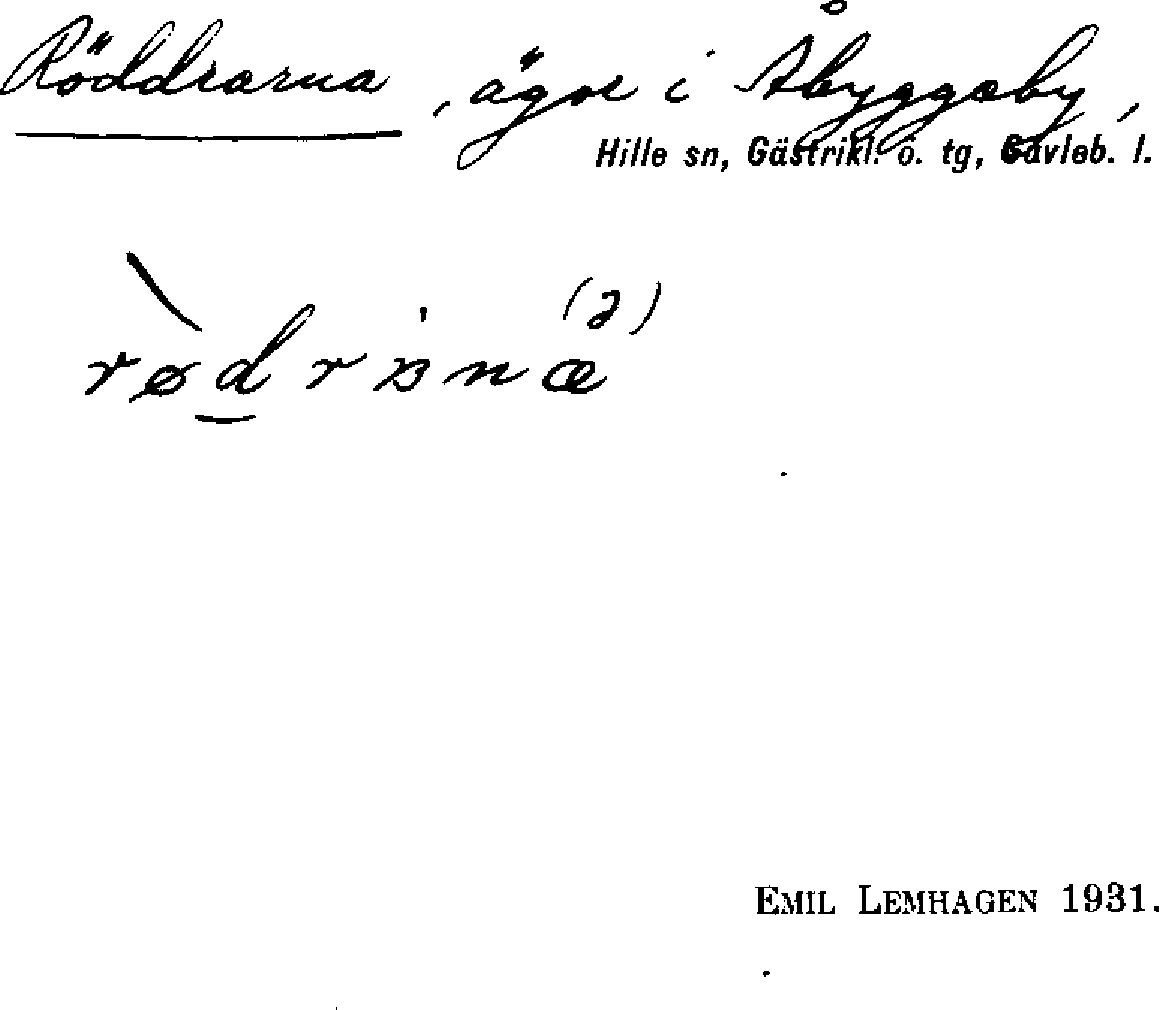 Röddrarna, ägor i Åbyggeby,
Hille sn, Gästrikl. ö. tg, Gävleb. l.
(ə)
EMIL LEMHAGEN 1931.